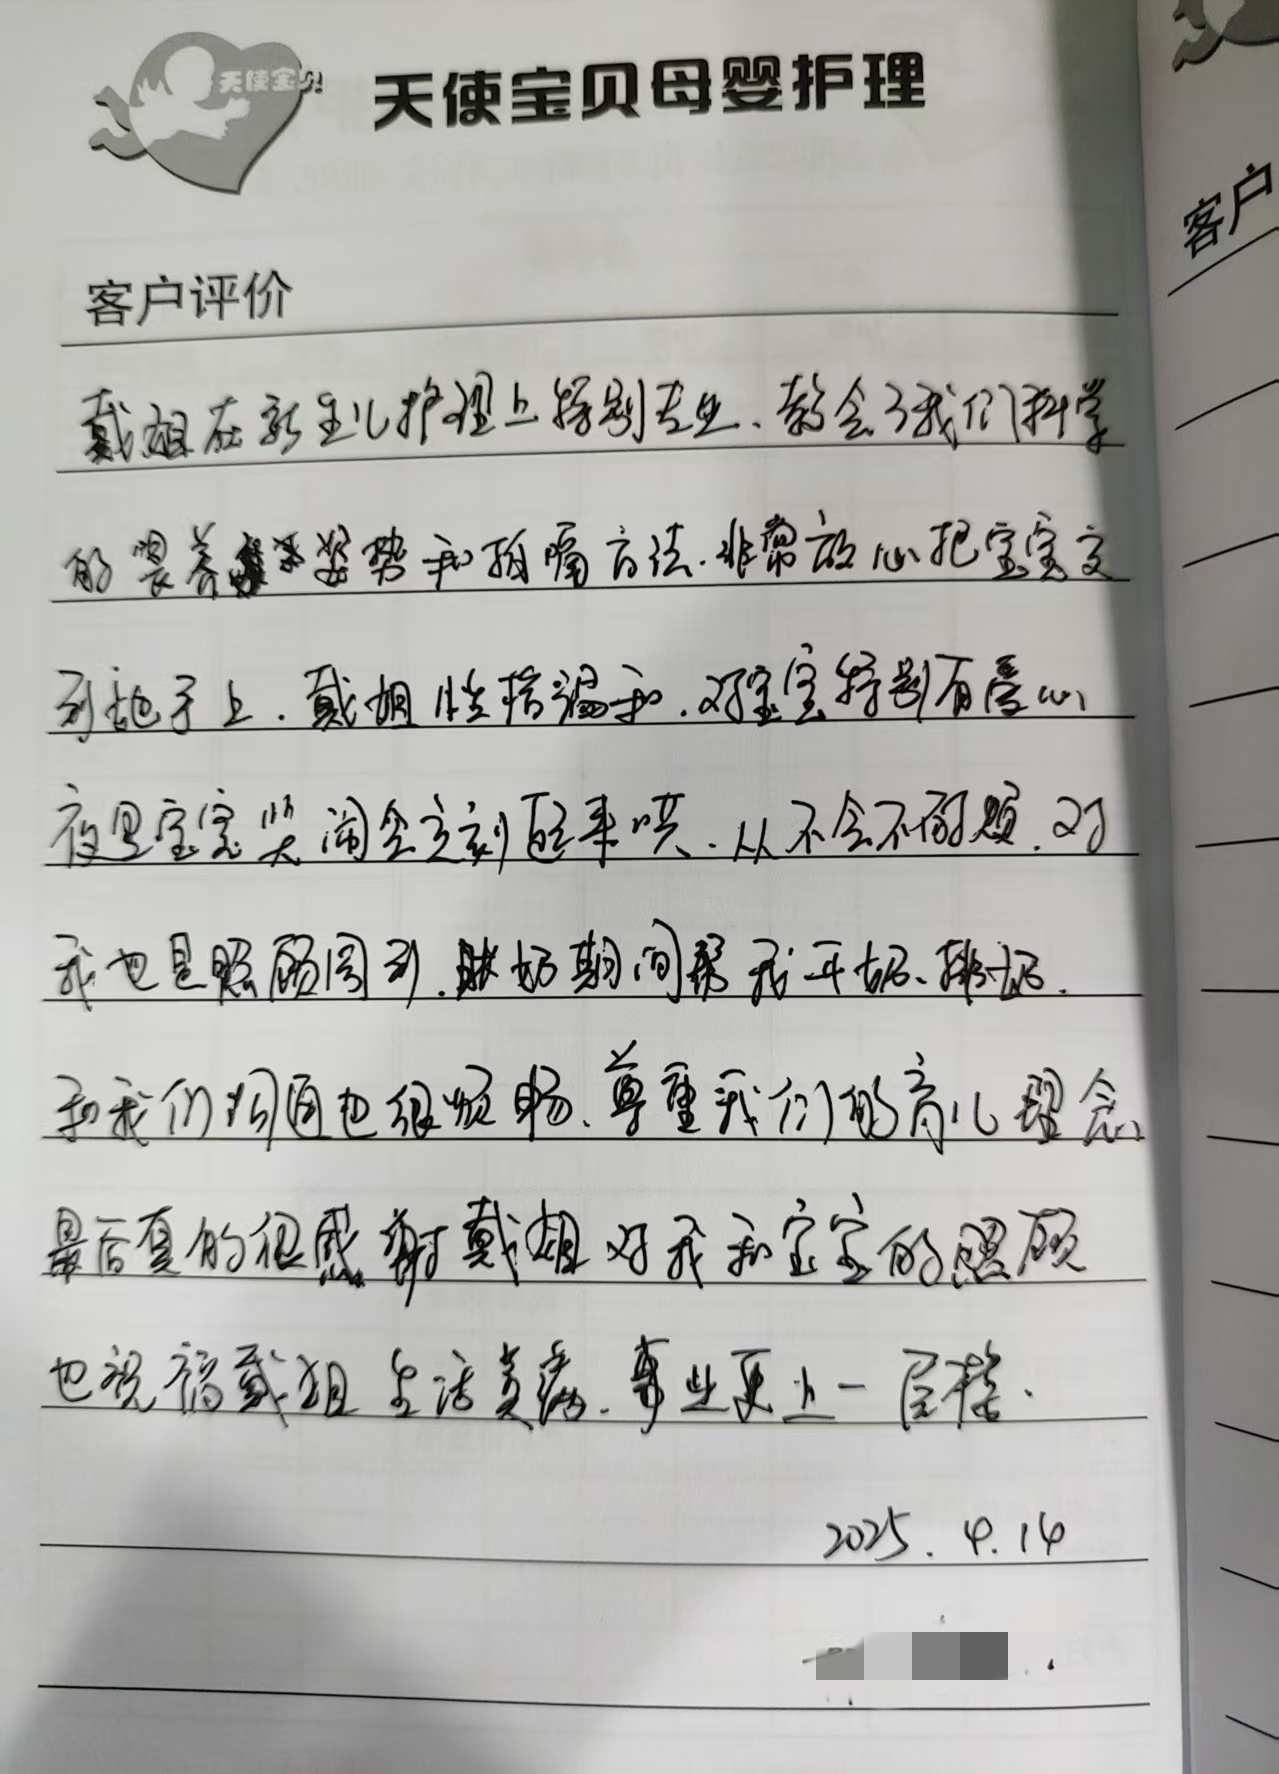 天使宝贝
天使宝贝母婴护理
客户评价
客户
戴姐在新生儿护理上特别专业、教会了我们科学
的喂养姿势和拍嗝方法.非常放心把宝宝交
到她手上.戴姐性格温和.对宝宝特别有爱心
夜里宝宝哭闹会立刻起来哄.从不会不耐烦.对
我也是照顾周到.胀奶期间帮我开奶、排奶.
和我们沟通也很顺畅、尊重我们的育儿理念
最后真的很感谢戴姐对我和宝宝的照顾
也祝福戴姐生活美满.事业更上一层楼.
2025.4.14